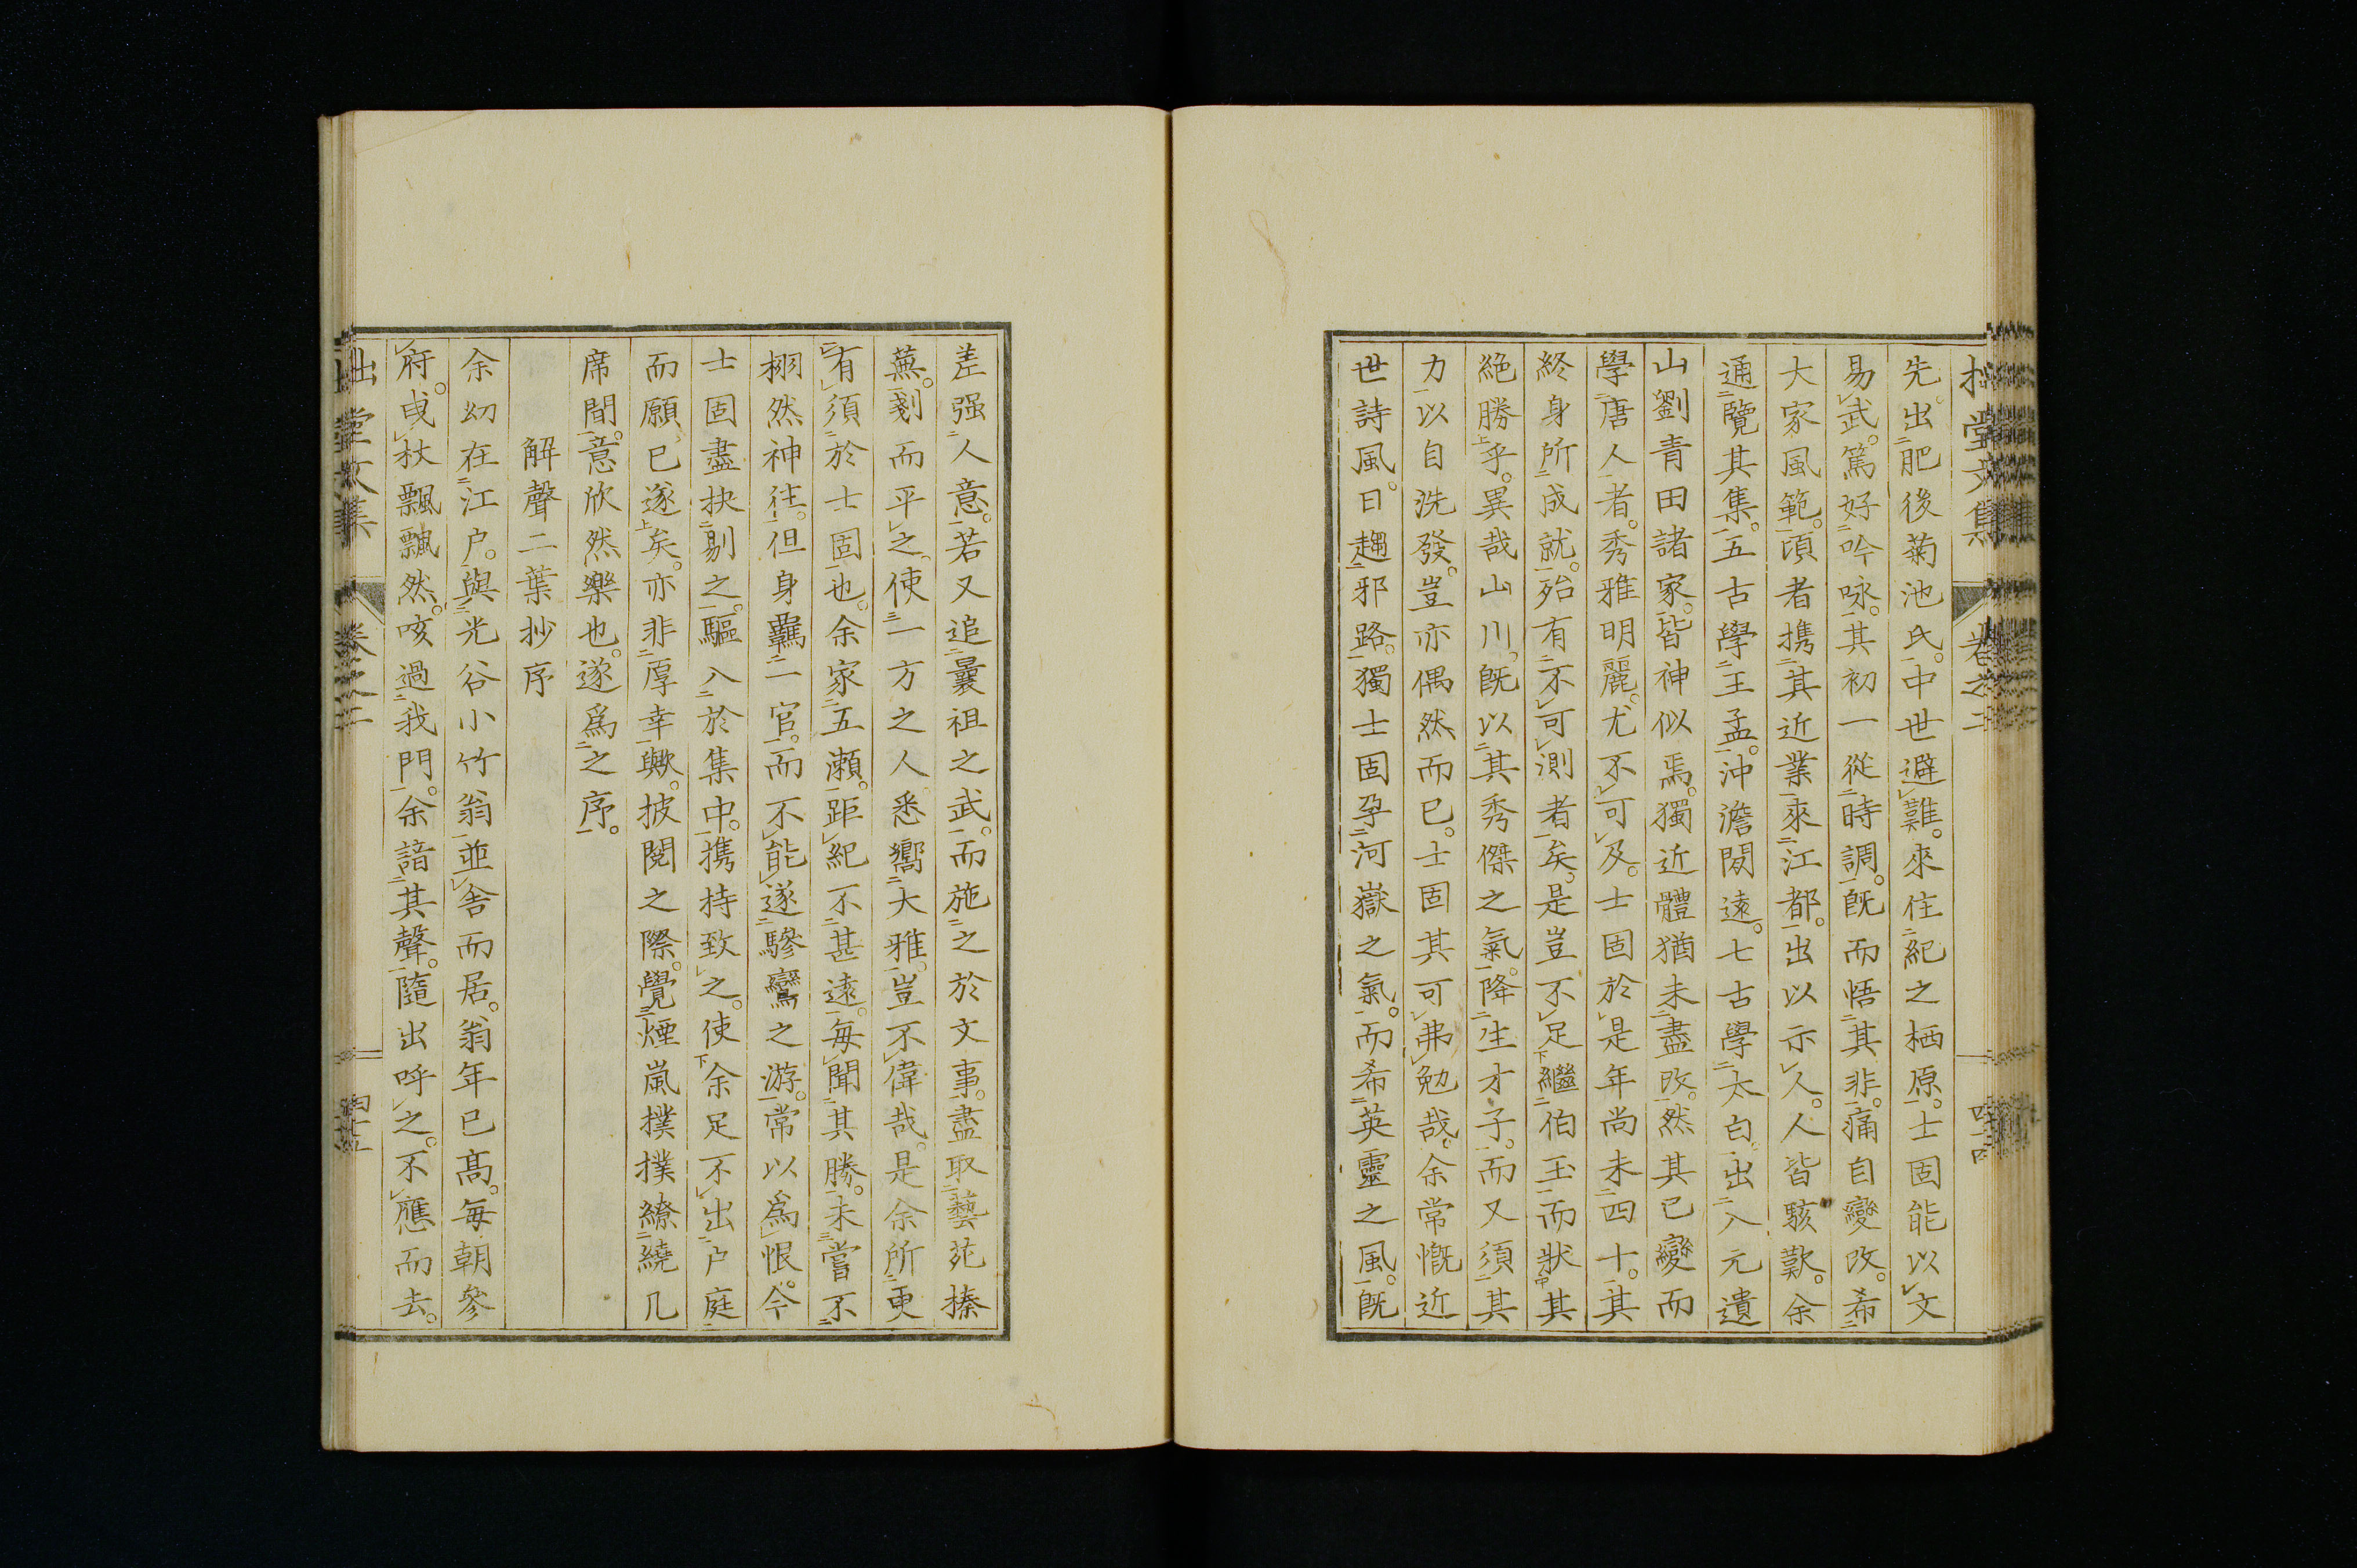 拙堂文集 卷之二 四十四
先出肥後菊池氏。中世避難。來住紀之栖原。士固能以文
易武。篤好吟咏。其初一從時調。旣而悟其非。痛自變改。希
大家風範。頃者携其近業來江都。出以示人。人皆駭歎。余
通覽其集。五古學王孟。沖澹閒遠。七古學太白。出入元遺
山劉青田諸家。皆神似焉。獨近體猶未盡改。然其已變而
學唐人者。秀雅明麗。尤不可及。士固於是年尚未四十。其
終身所成就。殆有不可測者矣。是豈不足繼伯玉而狀其
絶勝乎。異哉山川。旣以其秀傑之氣。降生才子。而又須其
力以自洗發。豈亦偶然而已。士固其可弗勉哉。余常慨近
世詩風。日趨邪路。獨士固孕河嶽之氣。而希英靈之風。旣
差强人意。若又追曩祖之武。而施之於文事。盡取藝苑榛
蕪。剗而平之。使一方之人悉嚮大雅。豈不偉哉。是余所更
有須於士固也。余家五瀨。距紀不甚遠。每聞其勝。未嘗不
栩然神往。但身羈一官。而不能遂驂鸞之游。常以爲恨。今
士固盡抉剔之。驅入於集中。携持致之。使余足不出户庭
而願已遂矣。亦非厚幸歟。披閱之際。覺煙嵐撲撲繚繞几
席間。意欣然樂也。遂爲之序。
解聲二葉抄序
余幼在江户。與光谷小竹翁並舍而居。翁年已髙。每朝參
府。曳杖飄飄然。咳過我門。余諳其聲。隨出呼之。不應而去。
拙堂文集 卷之二 四十五